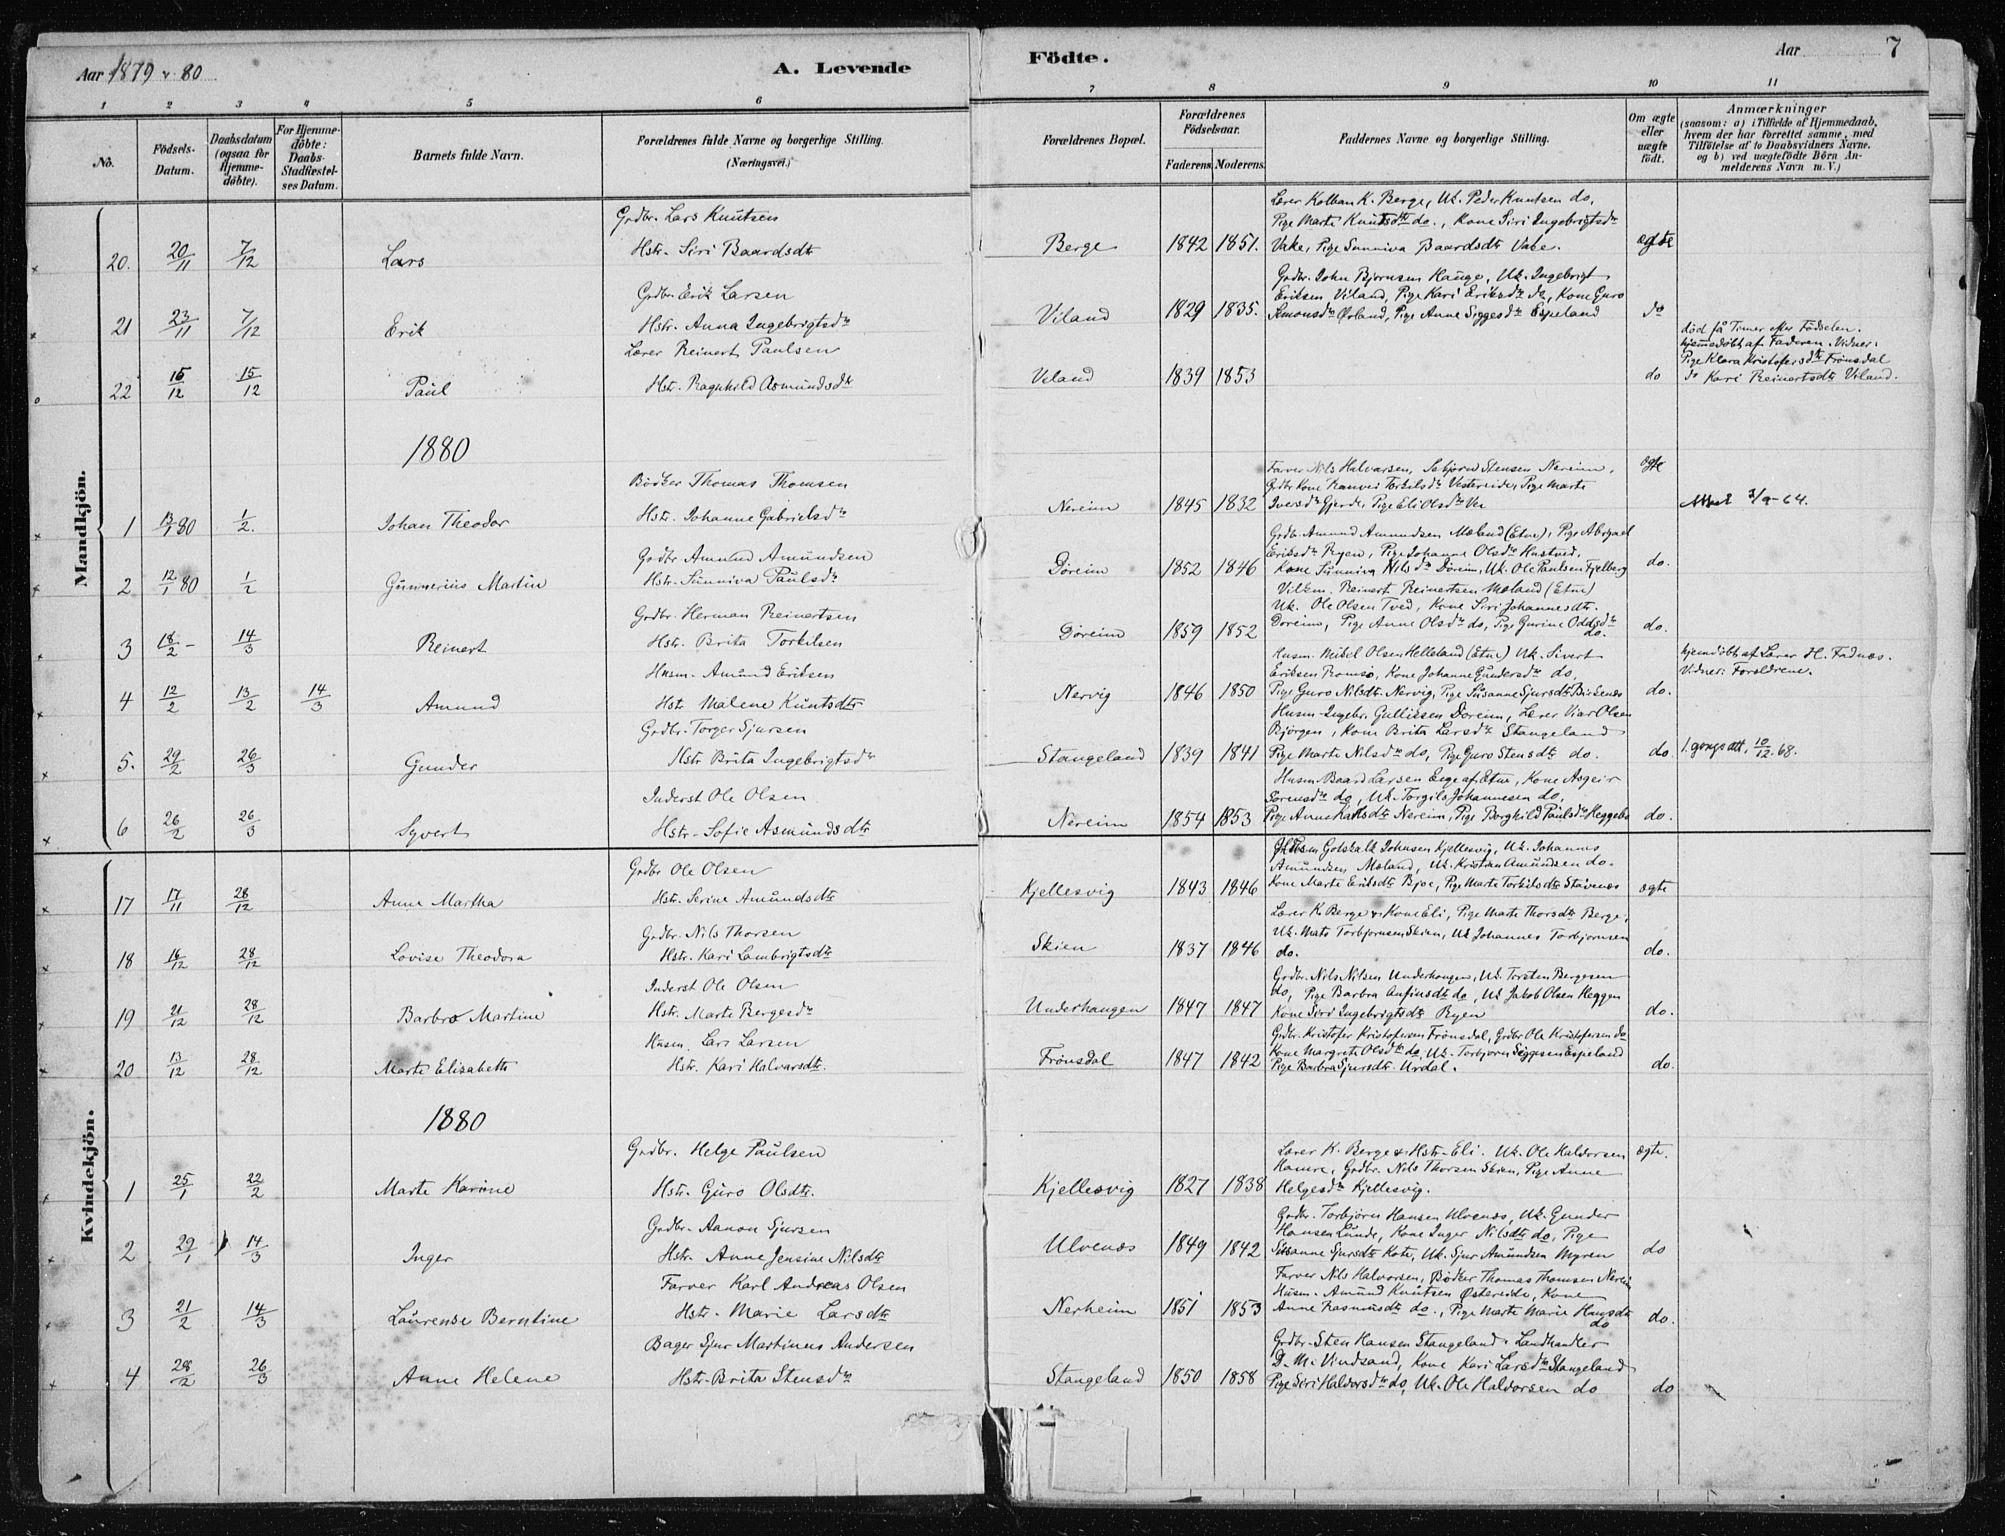 Aar 1879 & 80
A. Levende
Födte.
Aar 7
1 2 3 4 5 6 7 8 9 10 11
No.
Födsels-Datum.
Daabsdatum (ogsaa for Hjemme-döbte).
For Hjemme-döbte: Daabs-Stadfæstel-ses Datum.
Barnets fulde Navn.
Forældrenes fulde Navne og borgerlige Stilling. (Næringsvei.)
Forældrenes Bopæl.
Forældrenes Födselsaar.
Faderens. Moderens.
Faddernes Navne og borgerlige Stilling.
Om ægte eller uægte födt.
Anmærkninger
(saasom: a) i Tilfælde af Hjemmedaab,
hvem der har forrettet samme, med
Tilföielse af to Daabsvidners Navne.
og b) ved uægtefödte Börn An-
melderens Navn m. V.)
Mandkjön.
20. 20/11 7/12 Lars
Grdbr. Lars Knutsen
Hstr. Siri Baardsdtr
Berge 1842 1851.
Lærer Kolban K. Berge, Uk. Peder Knutsen do,
Pige Marte Knutsdtr do., Kone Siri Ingebrigtsdtr
Vake, Pige Sunniva Baardsdtr Vake.
ægte
21 23/11 7/12 Erik
Grdbr. Erik Larsen
Hstr. Anna Ingebrigtsdtr
Viland 1829 1835.
Grdbr. John Bjørnsen Hauge, Uk. Ingebrigt
Eriksen Viland, Pige Kari Eriksdtr do, Kone Guro
Simonsdtr Ørland, Pige Anne Siggesdtr Espeland
do
22 15/12 15/12 Paul
Lærer Reinert Paulsen
Hstr. Ragnhild Asmundsdtr
Viland 1839 1853
do
død få Timer efter Fødselen.
hjemmedøbt af Faderen. Vidner:
Pige Klara Kristofersdtr Frønsdal
do Kari Reinertsdtr Viland.
1880
1 13/1 80 1/2. Johan Theodor
Bødker Thomas Thomsen
Hstr. Johanne Gabrielsdtr
Nereim 1845 1832
Farver Nils Halvarsen, Sebjørn Stensen Nereim,
Grdbr Kone Ranvei Torkilsdtr Vestereide, Pige Marte
Iversdtr Gjerde, Pige Eli Olsdtr Ve
ægte
Attest 3/9-64.
2 12/1 80 1/2 Gunnerius Martin
Grdbr Amund Amundsen
Hstr. Sunniva Paulsdtr
Døreim 1852 1846
Grdbr. Amund Amundsen Mæland (Etne), Pige Abigael
Eriksdtr Ryen, Pige Johanne Olsdtr Hustved,
Kone Sunniva Nilsdtr Døreim, Uk. Ole Paulsen Fjelberg
do.
3 18/2 - 14/3 Reinert
Grdbr. Herman Reinertsen
Hstr. Brita Torkilsen
Døreim 1859 1852
Vilkm. Reinert Reinertsen Mæland (Etne)
Uk. Ole Olsen Tved, Kone Siri Johannesdtr.
Doreim, Pige Anne Olsdtr do, Pige Gurine Oddsdtr do.
do.
4 12/2 13/2 14/3 Amund
Husm. Amund Eriksen
Hst. Malene Kuntsdtr
Nervig 1846 1850
Husm. Mikel Olsen Helleland (Etne) Uk. Sivert
Eriksen Romsø, Kone Johanne Gundersdtr do,
Pige Guro Nilsdtr. Nervig, Pige Susanne Sjursdtr Birkenes
do.
hjemdøbt af Lærer H. Fadnæs.
Vidner: Forældrene.
5. 29/2 26/3 Gunder
Grdbr. Torger Sjursen
Hstr Brita Ingebrigtsdtr
Stangeland 1839 1841
Husm. Ingebr. Gulliksen Doreim, Lærer Viar Olsen
Bjørgen, Kone Brita Larsdtr Stangeland
Pige Marte Nilsdtr do, Pige Guro Stensdtr do.
do
1. gongs att. 10/12.68.
6 26/2 26/3 Syvert
Inderst Ole Olsen
Hstr. Sofie Asmundsdtr
Nereim 1854 1853
Husm. Baard Larsen Ege af Etne, Kone Asgeir
Sørensdtr do, Uk. Torgils Johannesen do,
Pige Anne Nereim, Pige Borghild Paulsdtr Heggebø
do.
Kvindekjön.
17 17/11 28/12 Anne Martha
Grdbr Ole Olsen
Hstr. Serine Amundsdtr
Kjellesvig 1843 1846
Gotskalk Johnsen Kjellesvig, Uk. Johannes
Amundsen Mæland, Uk. Kristian Amundsen do.
Kone Marte Eriksdtr Bjoe, Pige Marte Torkilsdtr Støvenes
ægte
18 16/12 28/12 Lovise Theodora
Grdbr. Nils Thorsen
Hstr. Kari Lambrigtsdtr
Skien 1837 1846
Lærer K. Berge & Kone Eli, Pige Marte Thorsdtr Berge,
Uk. Mats Torbjørnsen Skien, Uk Johannes Torbjørnsen
do.
do.
19 21/12 28/12 Barbro Martine
Inderst Ole Olsen
Hstr. Marte Bergesdtr
Underhaugen 1847 1847
Grdbr. Nils Nilsen Underhaugen, Uk. Torsten Bergesen
do, Pige Barbra Anfinsdtr do, Uk Jakob Olsen Heggen
Kone Siri Ingebrigtsdtr Ryen
do.
20 13/12 28/12 Marte Elisabeth
Husm. Lars Larsen
Hstr. Kari Halvarsdtr.
Frønsdal 1847 1842
Grdbr. Kristofer Kristofersen Frønsdal, Grdbr Ole Kristofersen do
Kone Margrete Olsdtr do, Uk. Torbjørn Siggesen Espeland
Pige Barbra Sjursdtr. Urdal.
do.
1880
1 25/1 22/2 Marte Karine
Grdbr. Helge Paulsen
Hstr. Guro Olsdtr.
Kjellesvig 1827 1838
Lærer K. Berge & Hstr. Eli. Uk. Ole Haldorsen
Hamre, Grdbr. Nils Thorsen Skien, Pige Anne
Helgesdtr Kjellesvig.
ægte.
2 29/1 14/3 Inger
Grdbr. Aanon Sjursen
Hstr. Anne Jensine Nilsdtr
Ulvenæs 1849 1842
Grdbr. Torbjørn Hansen Ulvenæs, Uk. Gunder
Hansen Lunde, Kone Inger Nilsdtr do, Pige
Susanne Sjursdtr Kate, Uk. Sjur Amundsen Myren
do
3 21/2 14/3 Laurense Berntine
Farver Karl Andreas Olsen
Hstr. Marie Larsdtr
Nerheim 1851 1853
Farver Nils Halvorsen, Bødker Thomas Thomsen Nereim
Husm. Amund Knutsen Østereide, Kone
Anne Rasmusdtr do., Pige Marte Marie Haugsdtr do
do.
4 28/2 26/3 Anne Helene
Bager Sjur Martinus Andersen
Hstr. Brita Stensdtr
Stangeland 1850 1858
Grdbr. Sten Hansen Stangeland. Landhandler
D. M. Vindsand, Kone Kari Larsdtr Stangeland
Pige Siri Haldorsdtr do, Uk. Ole Haldorsen do
do